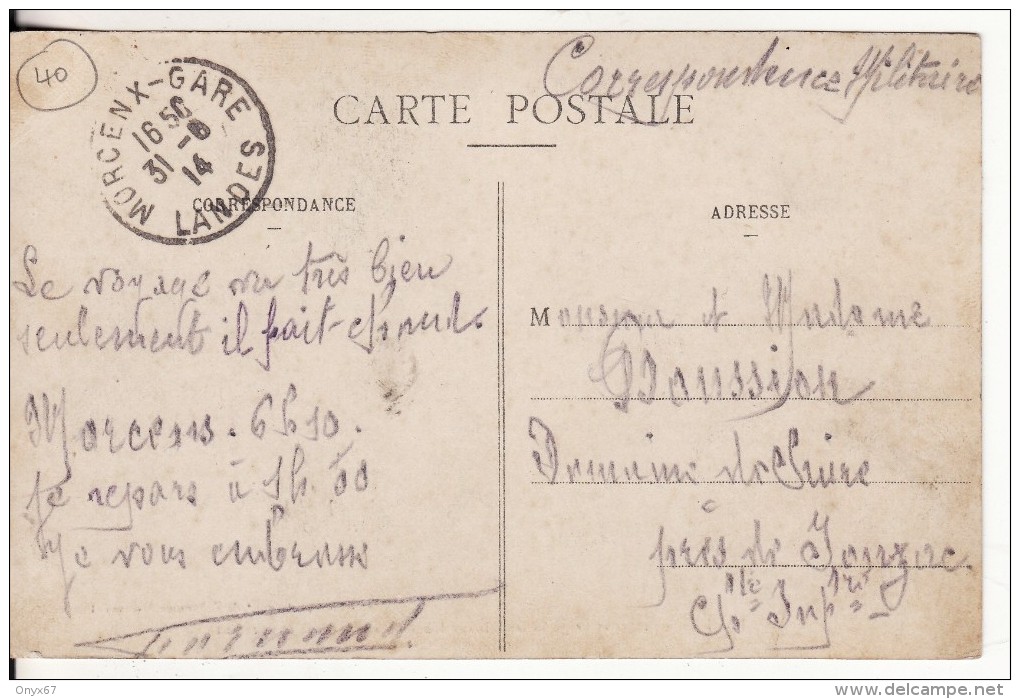 40
Correspondence Militaire
MORCENX-GARE
16 50
31 - 8
14
LANDES
CARTE POSTALE
CORRESPONDANCE
ADRESSE
Le voyage va très bien
seulement il fait chaud.
Morcenx. 6h10.
je repars à 7h 00
Je vous embrasse
M et Madame
Boussion
Domaine de
près de Jonzac.
Cte Infre
Onyx67
delcampe.net